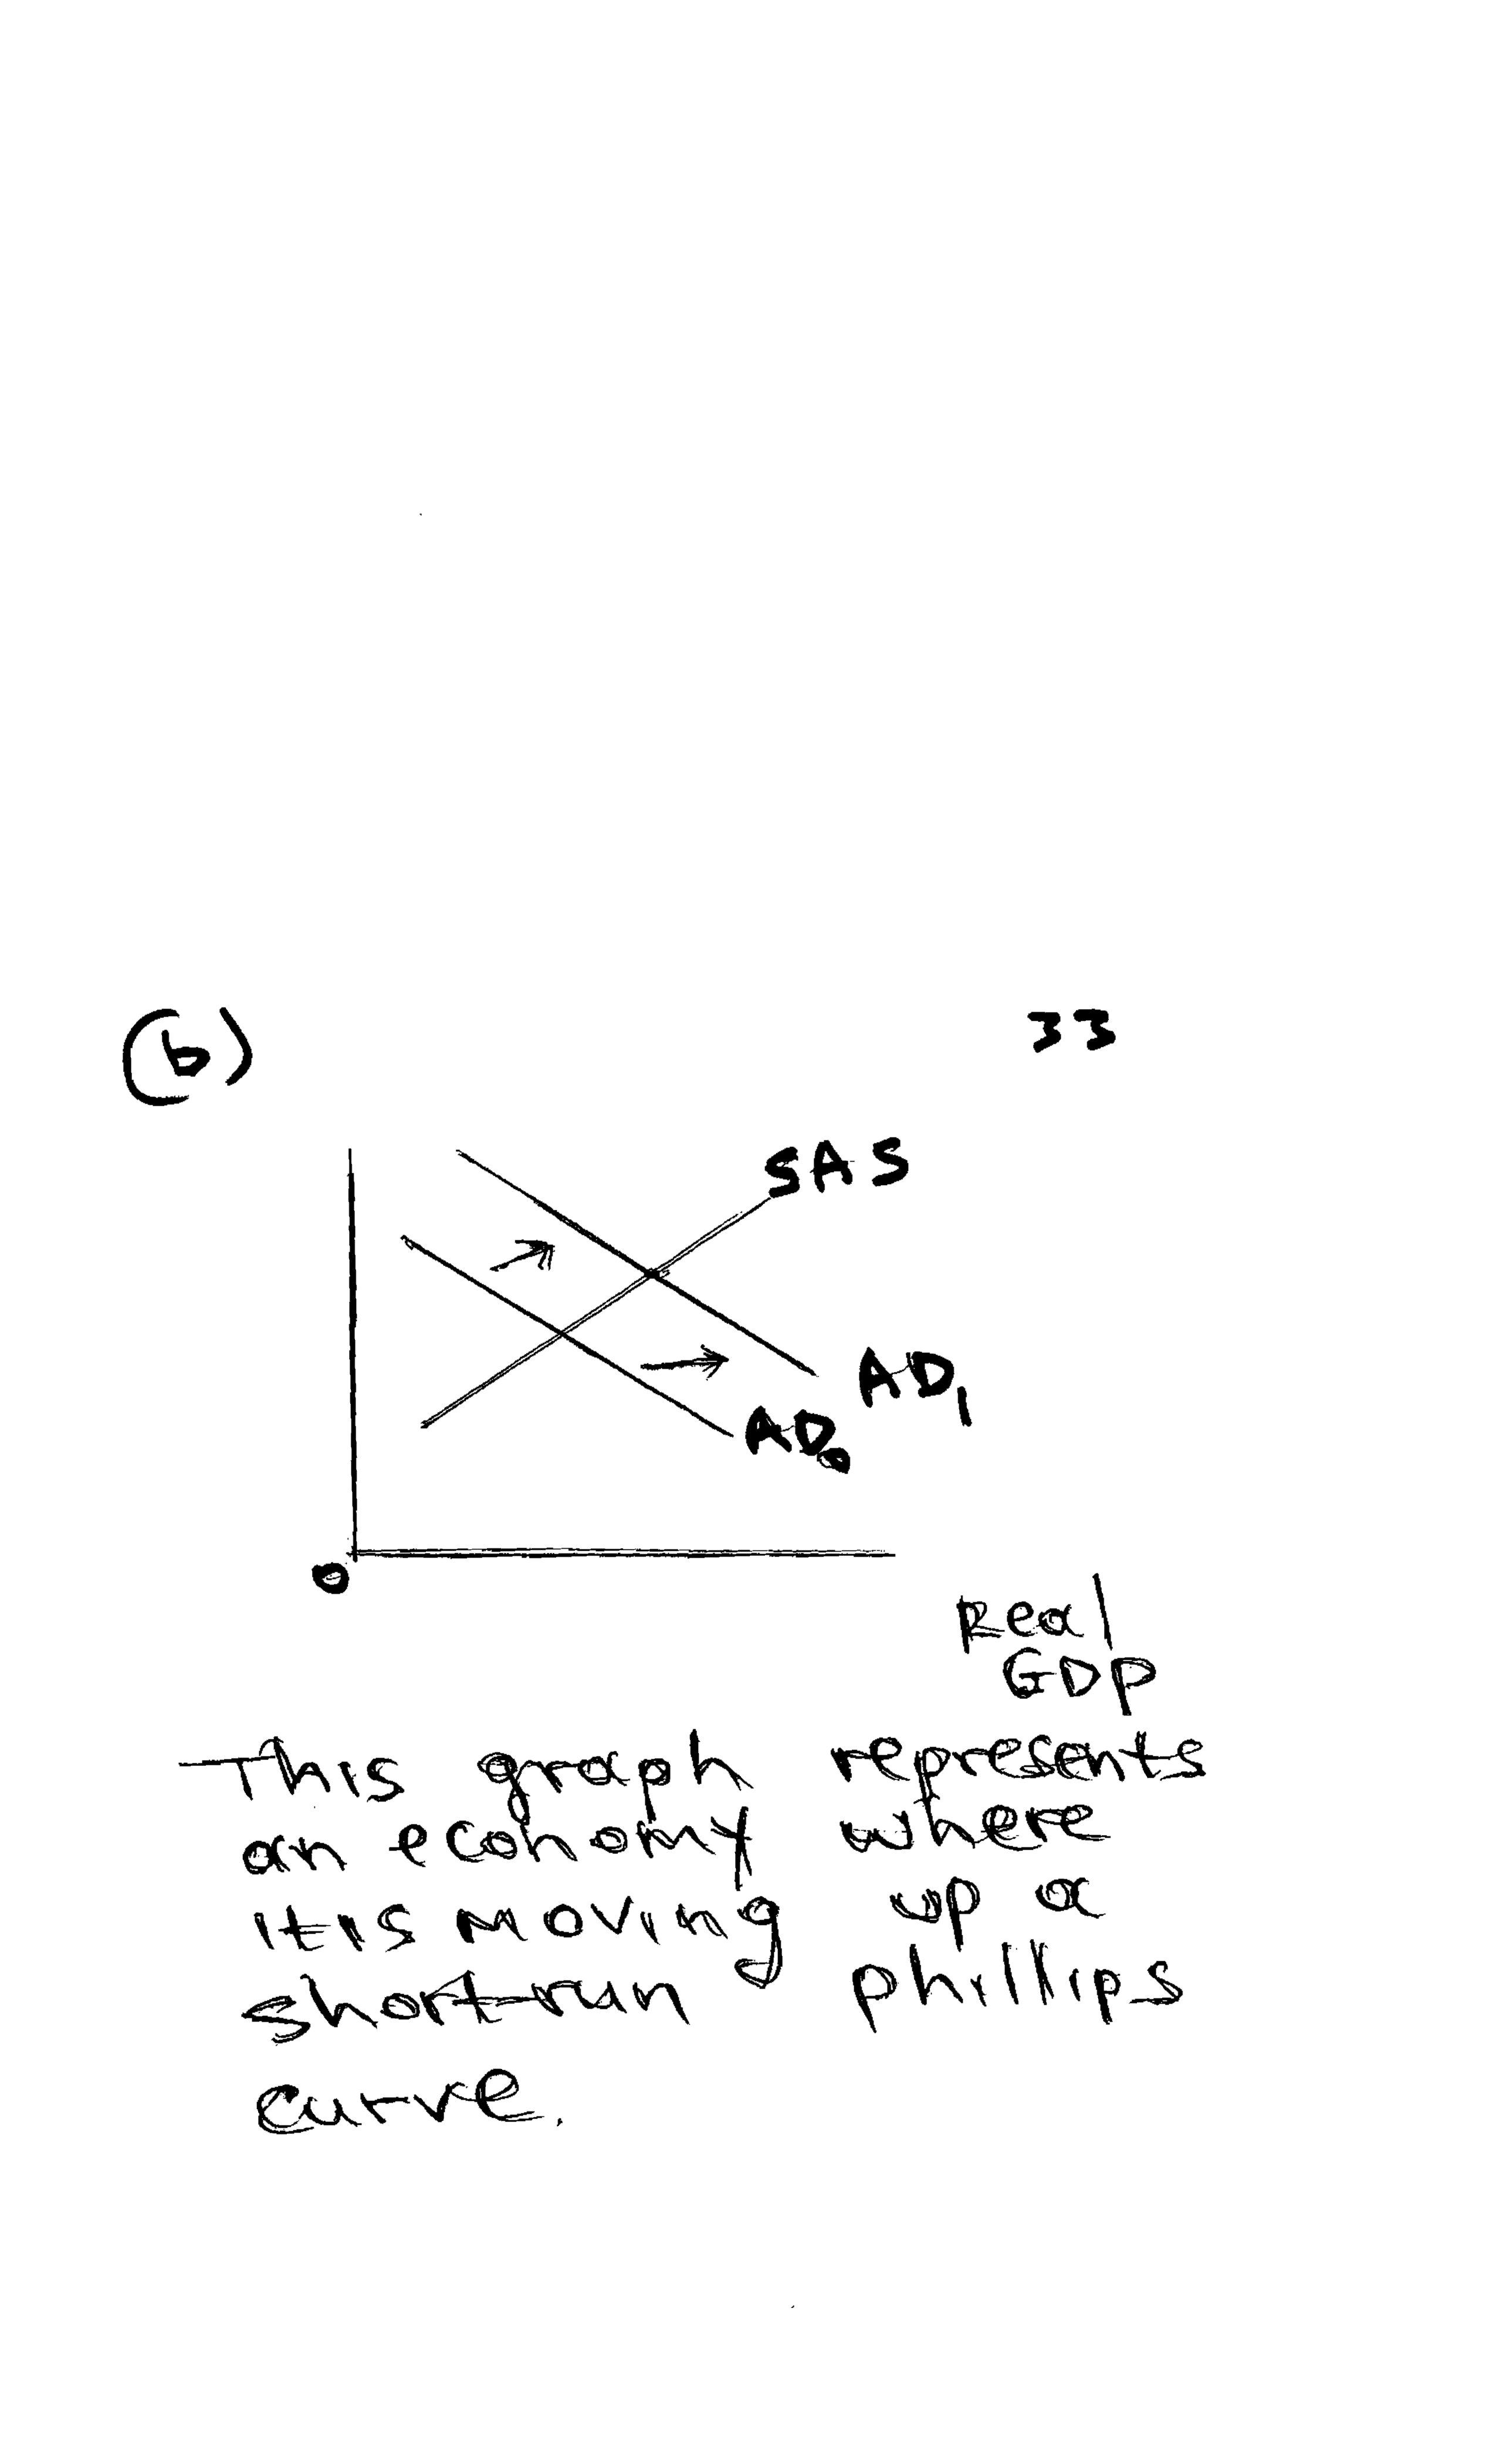 (b)
33
SAS
AD₁
AD₀
0
Real
GDP
This graph represents
an economy where
it is moving up a
short-run phillips
curve.